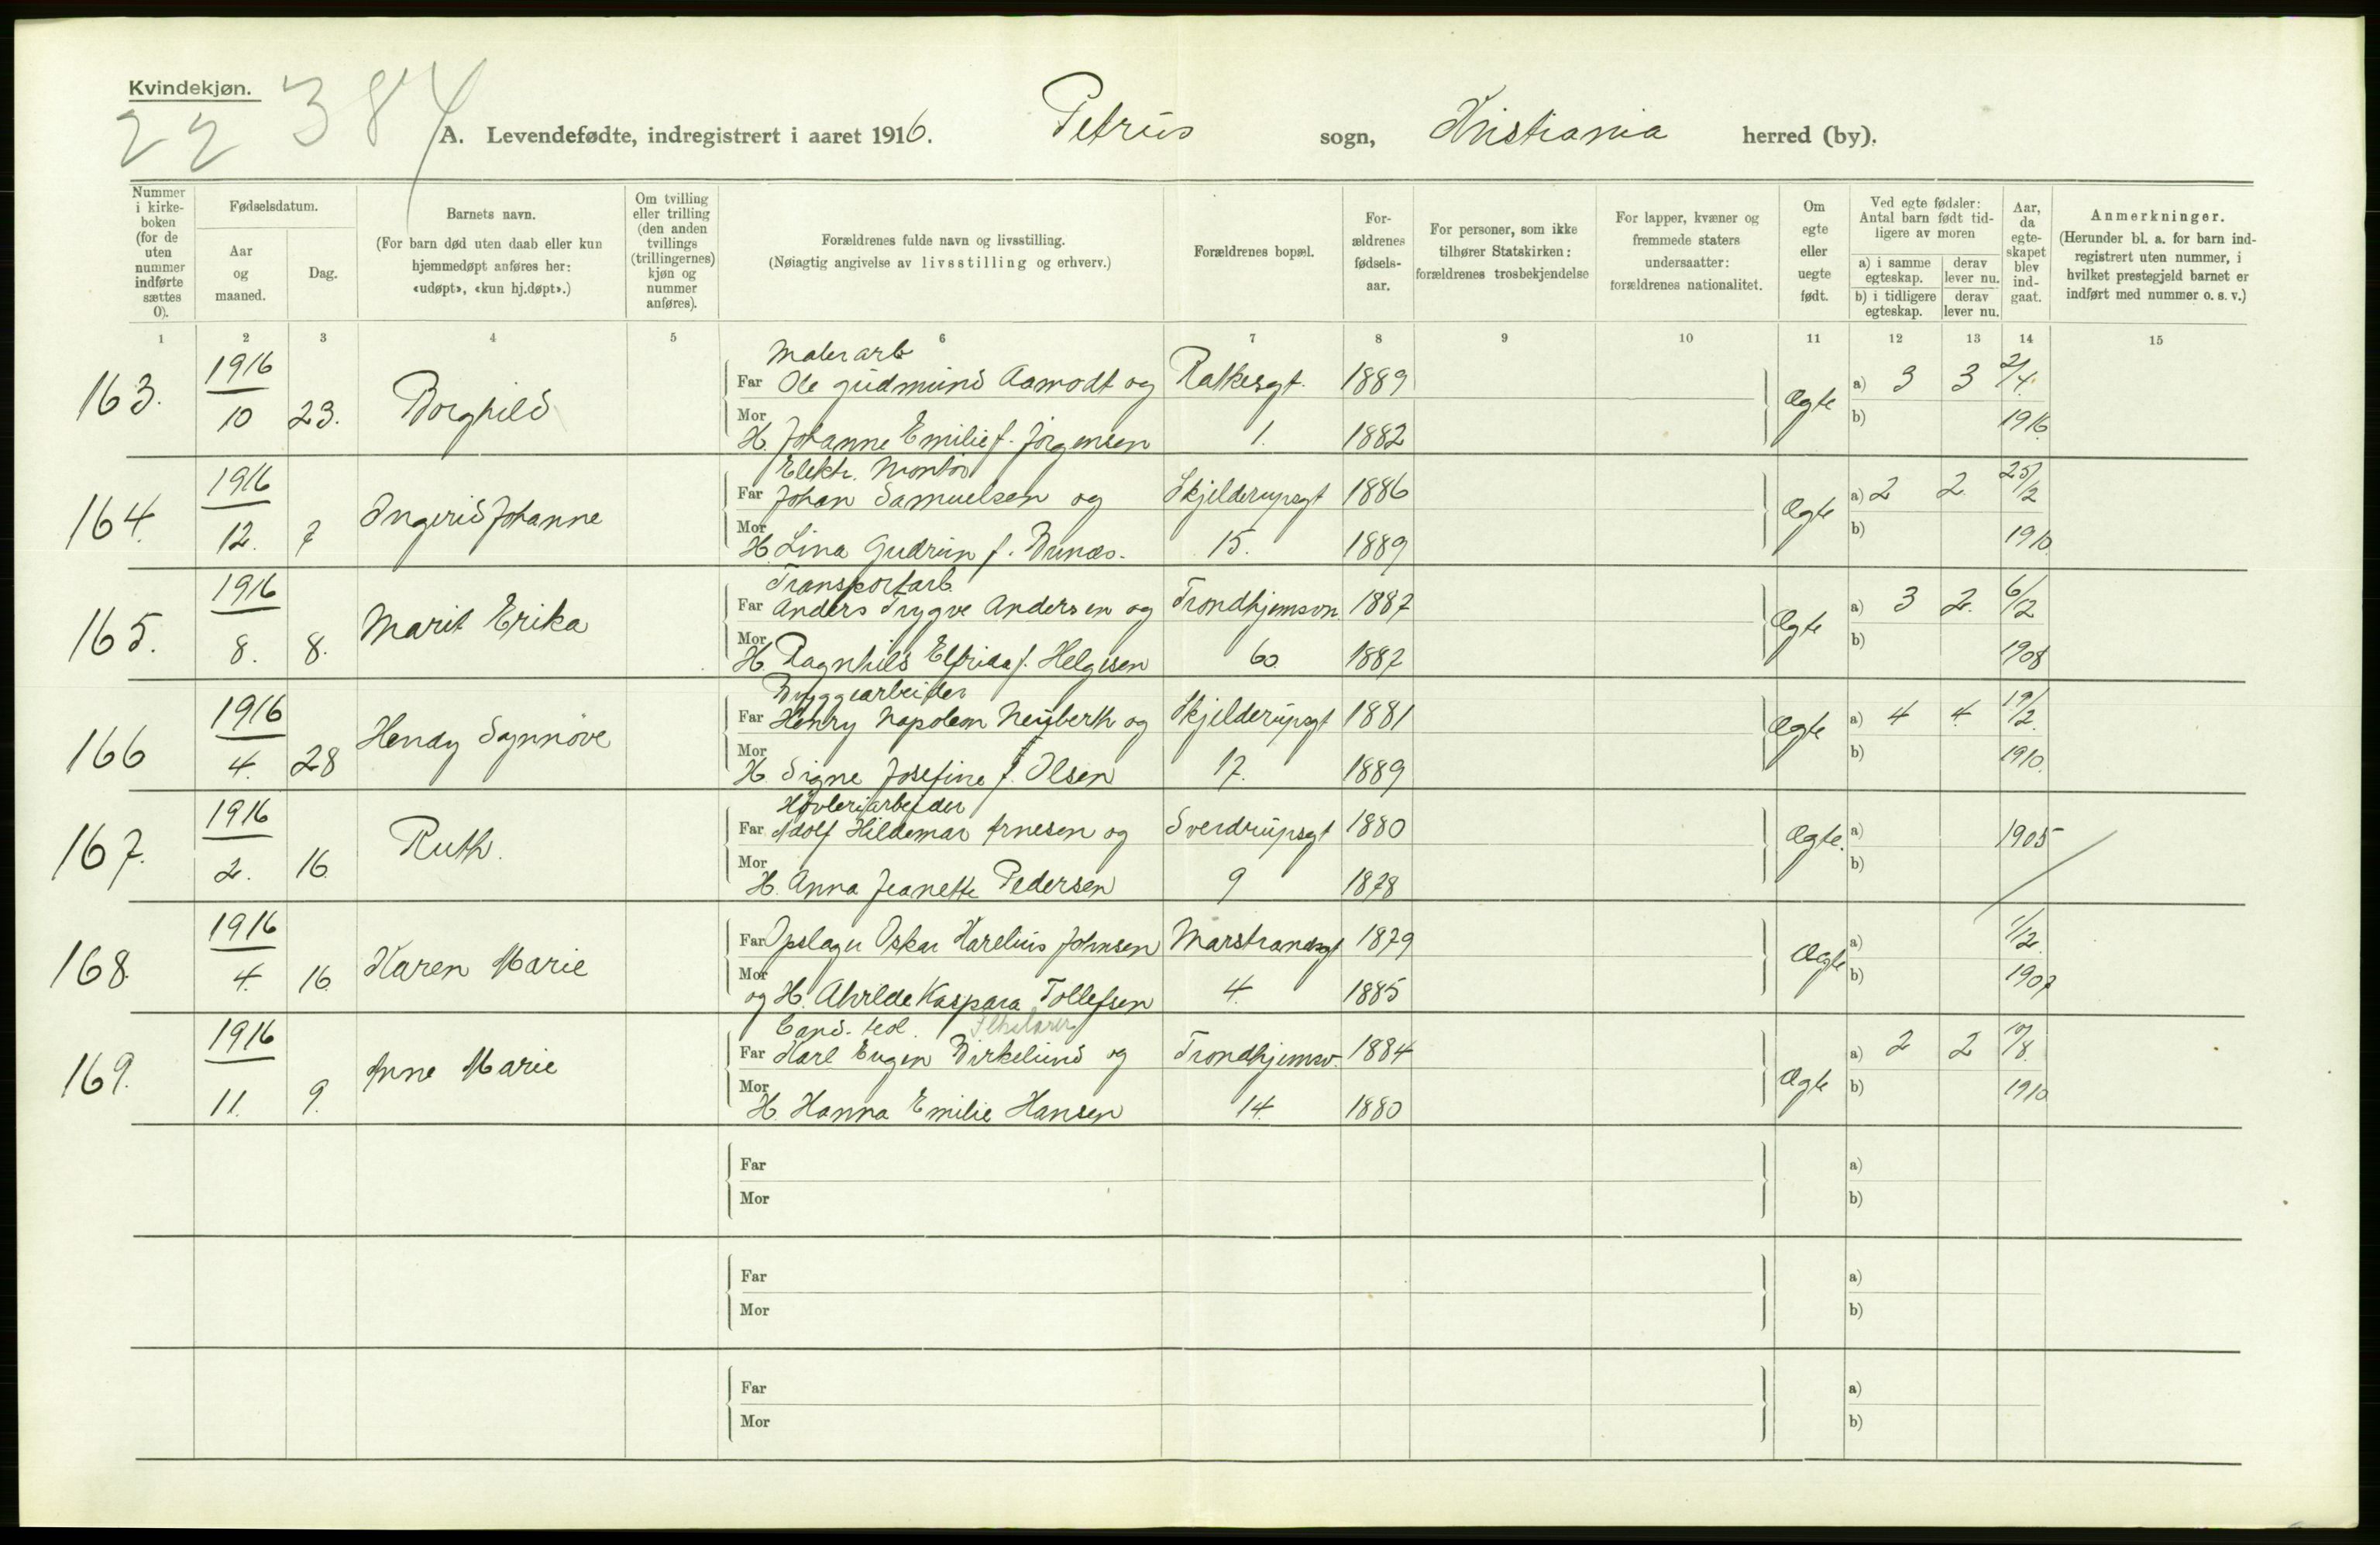 Kvindekjøn.
22 384
A. Levendefødte, indregistrert i aaret 1916. Petrus sogn, Kristiania herred (by).
Nummer i kirke-boken (for de uten nummer indførte sættes 0).
Fødselsdatum.
Aar og maaned.
Dag.
Barnets navn.
(For barn død uten daab eller kun hjemmedøpt anføres her: «udøpt», «kun hj.døpt».)
Om tvilling eller trilling (den anden tvillings (trillingernes) kjøn og nummer anføres).
Forældrenes fulde navn og livsstilling.
(Nøiagtig angivelse av livsstilling og erhverv.)
Forældrenes bopæl.
For-ældrenes fødsels-aar.
For personer, som ikke tilhører Statskirken: forældrenes trosbekjendelse
For lapper, kvæner og fremmede staters undersaatter: forældrenes nationalitet.
Om egte eller uegte født.
Ved egte fødsler: Antal barn født tid-ligere av moren
a) i samme egteskap. derav lever nu.
b) i tidligere egteskap. derav lever nu.
Aar, da egte-skapet blev ind-gaat.
Anmerkninger.
(Herunder bl. a. for barn ind-registrert uten nummer, i hvilket prestegjeld barnet er indført med nummer o. s. v.)
1 2 3 4 5 6 7 8 9 10 11 12 13 14 15
Malerarb
163. 1916 Borghild Far Ole Gudmund Aamodt og Ratkesgt. 1889 Ægte a) 3 3 2/4.
10 23. Mor H. Johanne Emilie f. Jörgensen 1. 1882 b) 1916
Elektr. Montör
164. 1916 Ingerid Johanne Far Johan Samuelsen og Skjelderupsgt 1886 Ægte a) 2 2 25/2
12. 7 Mor H. Lina Gudrun f. Bunæs. 15. 1889 b) 1910
Transportarb.
165. 1916 Marit Erika Far Anders Trygve Andersen og Trondhjemsvn 1887 Ægte a) 3 2. 6/2
8. 8. Mor H. Ragnhild Elfrida f. Helgesen 60. 1887 b) 1908
Bryggearbeider
166 1916 Hendy Synnöve Far Henry Napoleon Neuberth og Skjelderupsgt 1881 Ægte a) 4 4 19/2.
4. 28 Mor H. Signe Josefine f. Olsen 17. 1889 b) 1910.
Hövleriarbeider
167. 1916 Ruth. Far Adolf Hildemar Arnesen og Sverdrupsgt 1880 Ægte. a) 1905
2. 16. Mor H. Anna Jeanette Pedersen 9 1878 b)
168. 1916 Karen Marie Far Opslager Oskar Karelius Johnsen Marstrandsgt 1879 Ægte a) 1/12.
4. 16. Mor og H. Alvilde Kaspara Tollefsen 4. 1885 b) 1907
Cand. teol.
169. 1916 Anne Marie Far Karl Eugen Birkelund og Trondhjemsv. 1884 Ægte a) 2 2 10/8.
11. 9. Mor H. Hanna Emilie Hansen 14. 1880 b) 1910
Far a)
Mor b)
Far a)
Mor b)
Far a)
Mor b)